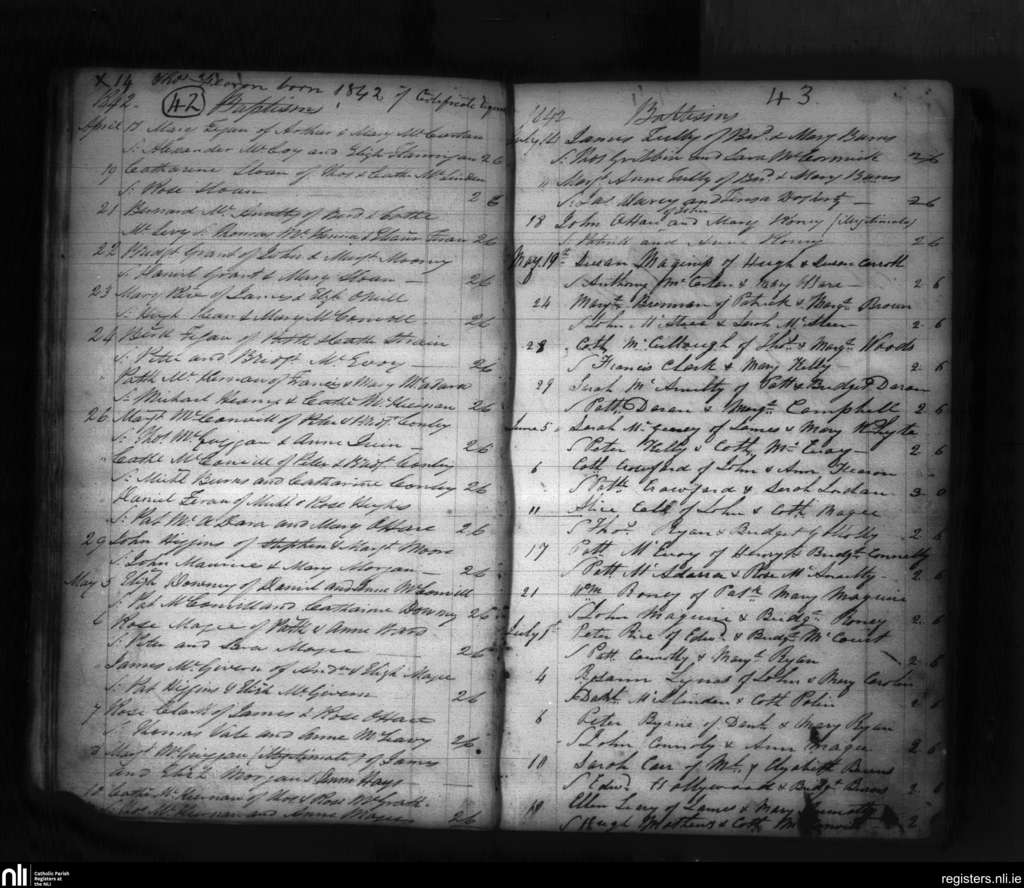 x 14 Thos born 1842 Certificate
1842. 42 Baptism
April 17 Mary Fegan of Arthur & Mary McCourtan
S: Alexander McCoy and Eligh Flannigan 26
19 Catharine Sloan of Thos & Cathe McLinden
S: Rose Sloan 26
21 Bernard Mc of Bernd & Cathe
McLevy S: Thomas McKenna & 26
22 Bridgt Grant of John & Margt Mooney
S: Daniel Grant & Mary Sloan 26
23 Mary Rice of James & Eligh ONeill
S: Hugh Kean & Mary McConvill 26
24 Fegan of Patk
S: Peter and Bridgt McEvoy 26
Patk McKernan of Francis & Mary McAdara
S: Michael Hearns & Cathe 26
26 Margt McConvill of Peter & Bridgt Conley
S: Thos McGuiggan & Anne Quin 26
Cathe McConvill of Peter & Bridgt Conley
S: Michl Burns and Catharine Conley 26
Daniel of Michl & Rose Hughs
S: Pat McADara and Mary OHare 26
29 John Higgins of Stephen & Margt Moore
S: John Maurice & Mary Morgan 26
May 3 Eligh Downey of Daniel and Anne McConvill
S: Pat McConvill and Catharine Downey 26
6 Rose Magee of Patk & Anne Ward
S: Peter and Sara Magee 26
James McGivern of Andw & Eligh Magee
S: Pat Higgins & Elizh McGivern 26
7 Rose Clark of James & Rose OHare
S: Thomas Vale and Anne McLavy 26
Margt McGuiggan (Illegitimate) of James
and Elizh Morgan S: Anne Hays
10 Cathe McKiernan of Thos & Rose McGrath
Thos McKiernan and Anne Magee 26
43
1842 Baptism
July 14 James Tully of Bernd & Mary Burns
S: Thos Gribbin and Sara McCormick 26
" Margt Anne Tully of Bernd & Mary Burns
S: Jas Darcy and Teresa Doherty 26
of John
18 John OHare and Mary Roney (Illegitimate)
S: Patrick and Anne Roney 26
May 19th Susan Maginis of Hugh & Susan Carroll
S Anthony McCartan & Mary OHare 2 6
24 Margt Brennan of Patrick & Margt Brown
S John McSteen & Sarah McSteen 2 6
28 Cath McCullaugh of Thos & Margt Woods
S Francis Clark & Mary Kelly 2 6
29 Sarah McAnulty of Patt & Bridget Doran
S Patt Doran & Margt Campbell 2 6
June 5 Sarah McGeevey of James & Mary Whyte
S Peter Kelly & Cath McEvoy 2 6
6 Cath Crawford of John & Ann Fearon
S Patk Crawford & Sarah Jordan 3 0
11 Alice Call of John & Cath Magee
S Thos Ryan & Bridget Gilholly 2 6
17 Patt McEvoy of Henry & Bridgt Connolly
S Patt McAdarra & Rose McAnulty 2 6
21 Wm Roney of Patk Mary Maguire
S John Maguire & Bridgt Roney 2 6
July 1st Peter Rice of Edwd & Bridgt McCourt
S Patt Connolly & Margt Ryan 2 6
4 Rosann Lynas of John & Mary Carlin
S McAlinden & Cath Polin 2 6
6 Peter Byrne of & Mary Ryan
S John Connoly & Ann Magee 2 6
10 Sarah Carr of & Elizabeth Burns
S Edwd Hollywood & Bridgt Burns 2 6
10 Ellen Leery of James & Mary Connolly
S Hugh Mathews & Cath McConvill 2 6
nli Catholic Parish
Registers at
the NLI
registers.nli.ie